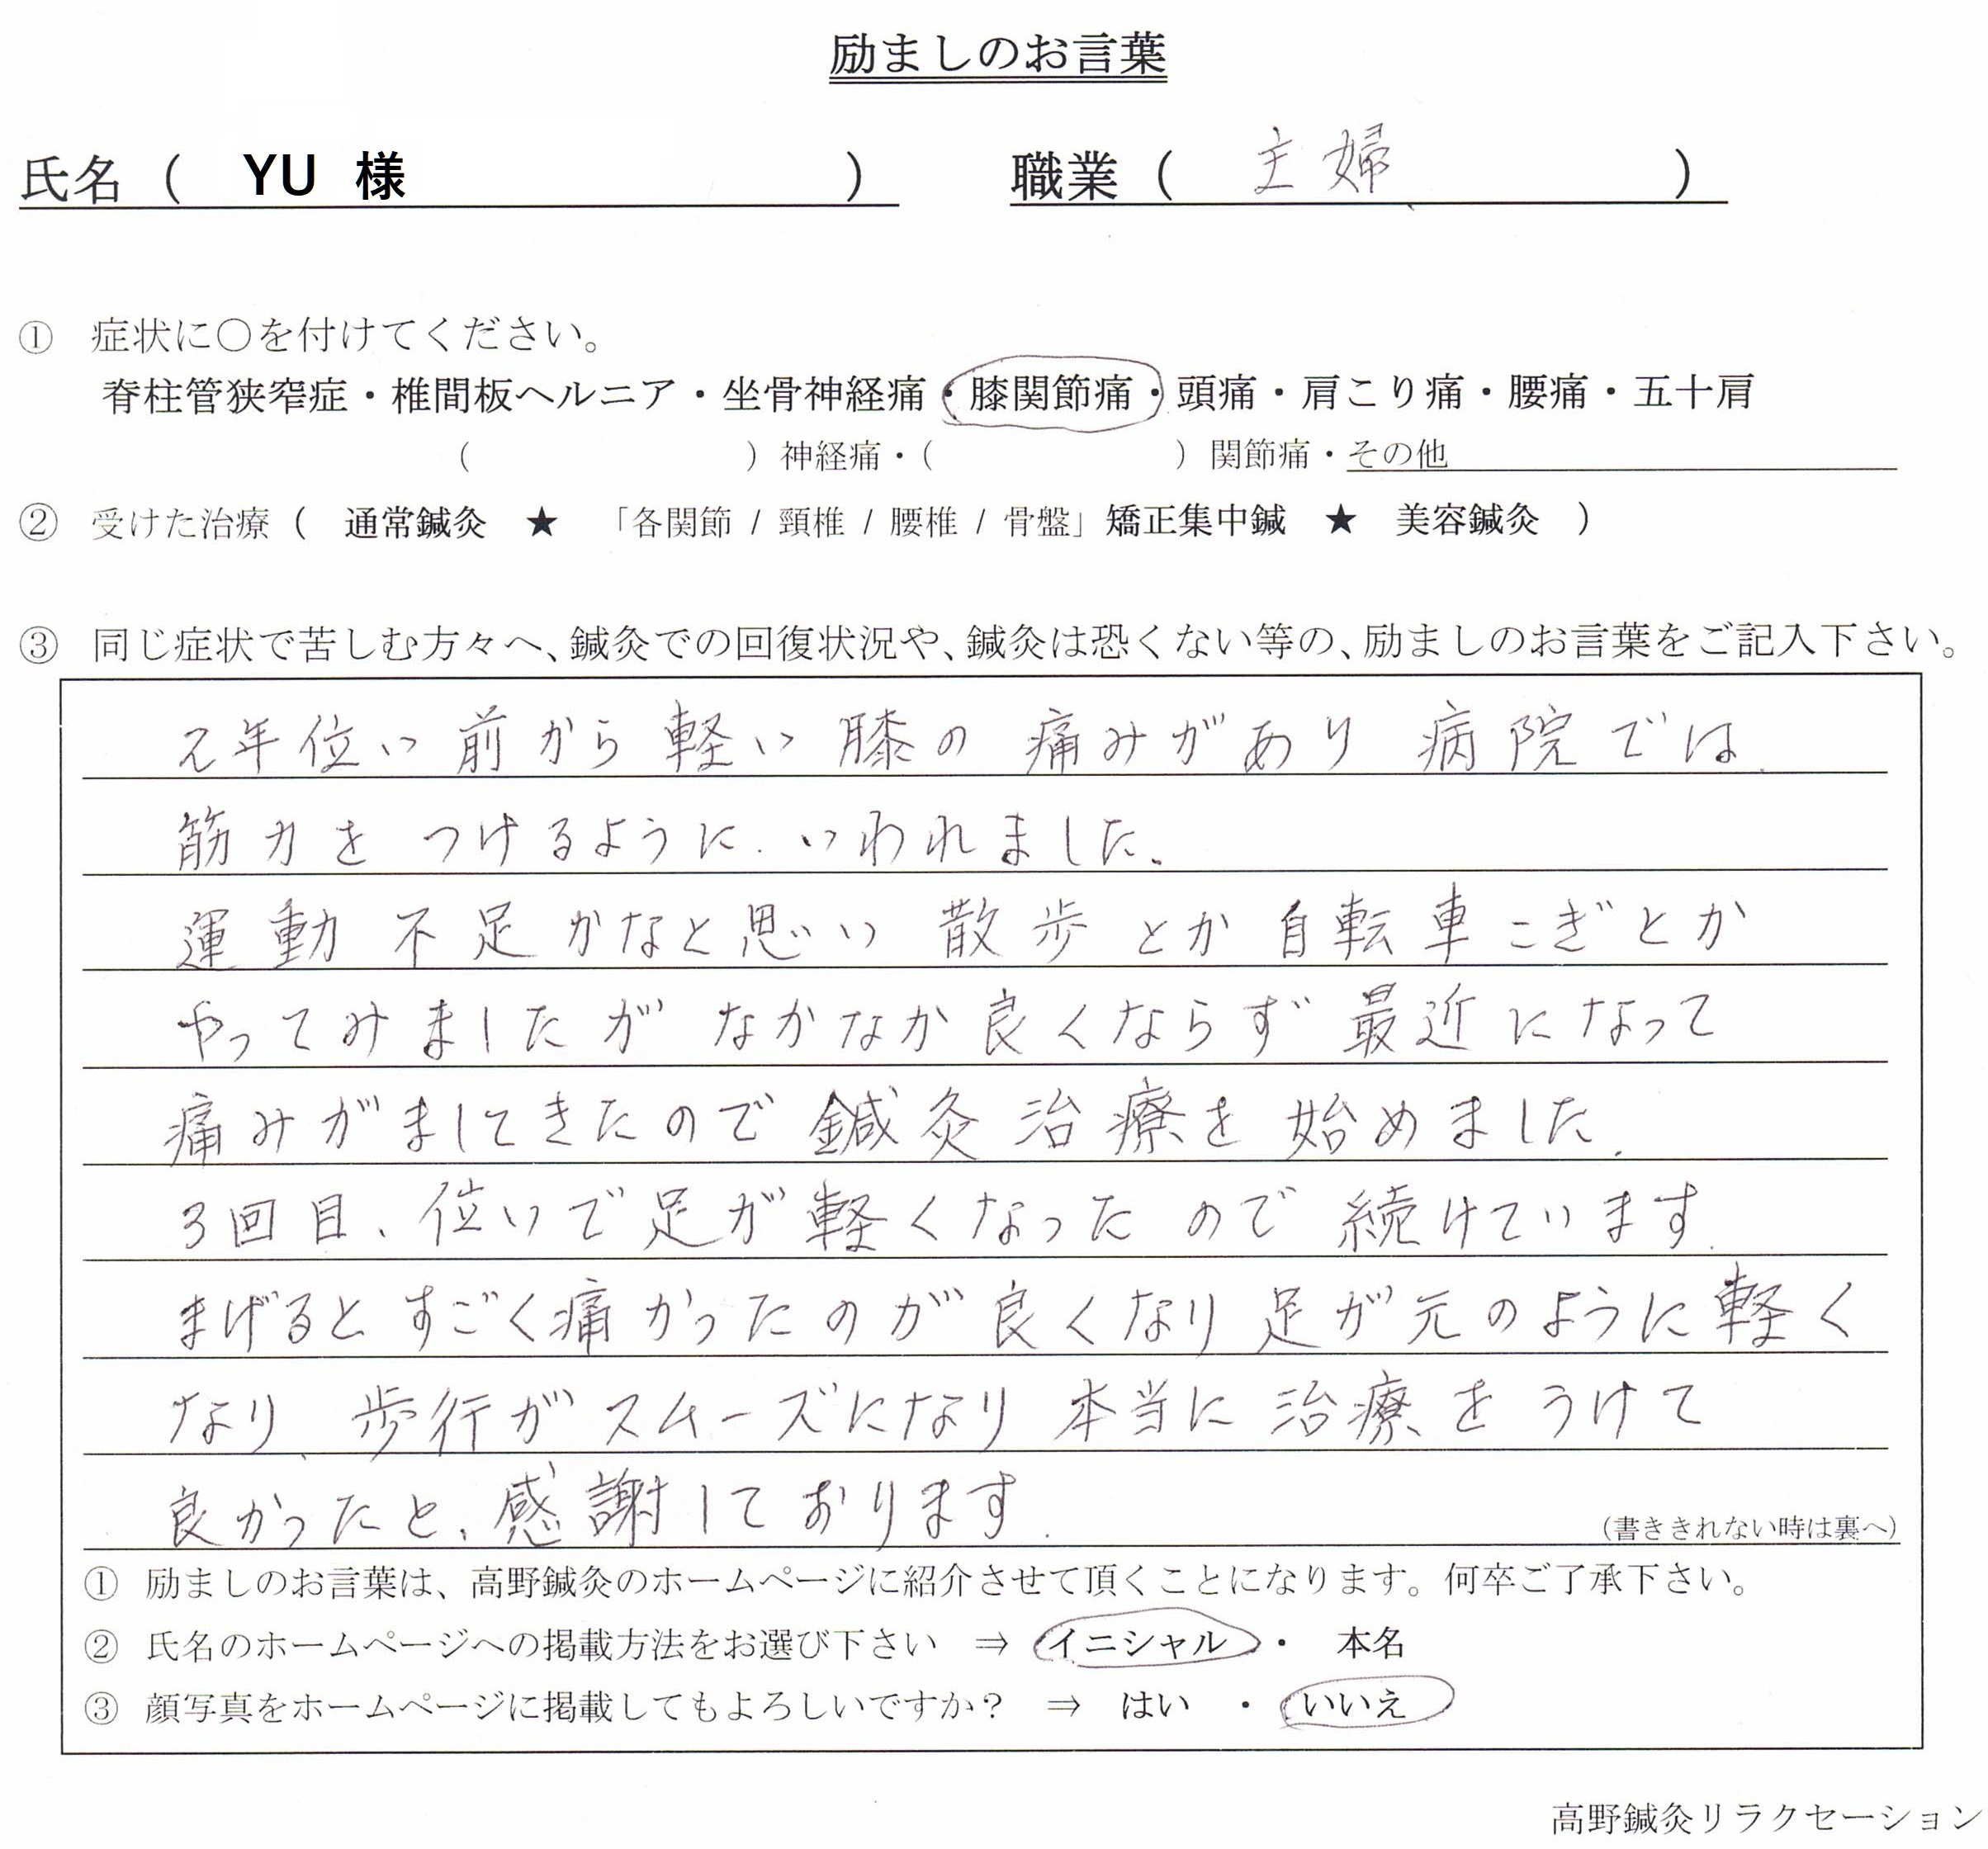 励ましのお言葉
氏名（ YU 様 ） 職業（ 主婦 ）
① 症状に〇を付けてください。
脊柱管狭窄症・椎間板ヘルニア・坐骨神経痛・膝関節痛・頭痛・肩こり痛・腰痛・五十肩
（ ）神経痛・（ ）関節痛・その他
② 受けた治療（ 通常鍼灸 ★ 「各関節 / 頸椎 / 腰椎 / 骨盤」矯正集中鍼 ★ 美容鍼灸 ）
③ 同じ症状で苦しむ方々へ、鍼灸での回復状況や、鍼灸は恐くない等の、励ましのお言葉をご記入下さい。
2年位い前から軽い膝の痛みがあり病院では
筋力をつけるように.いわれました。
運動不足かなと思い散歩とか自転車こぎとか
やってみましたがなかなか良くならず最近になって
痛みがましてきたので鍼灸治療を始めました.
3回目、位いで足が軽くなったので続けています.
まげるとすごく痛かったのが良くなり足が元のように軽く
なり、歩行がスムーズになり本当に治療をうけて
良かったと、感謝しております.
（書ききれない時は裏へ）
① 励ましのお言葉は、高野鍼灸のホームページに紹介させて頂くことになります。何卒ご了承下さい。
② 氏名のホームページへの掲載方法をお選び下さい ⇒ イニシャル ・ 本名
③ 顔写真をホームページに掲載してもよろしいですか？ ⇒ はい ・ いいえ
高野鍼灸リラクセーション